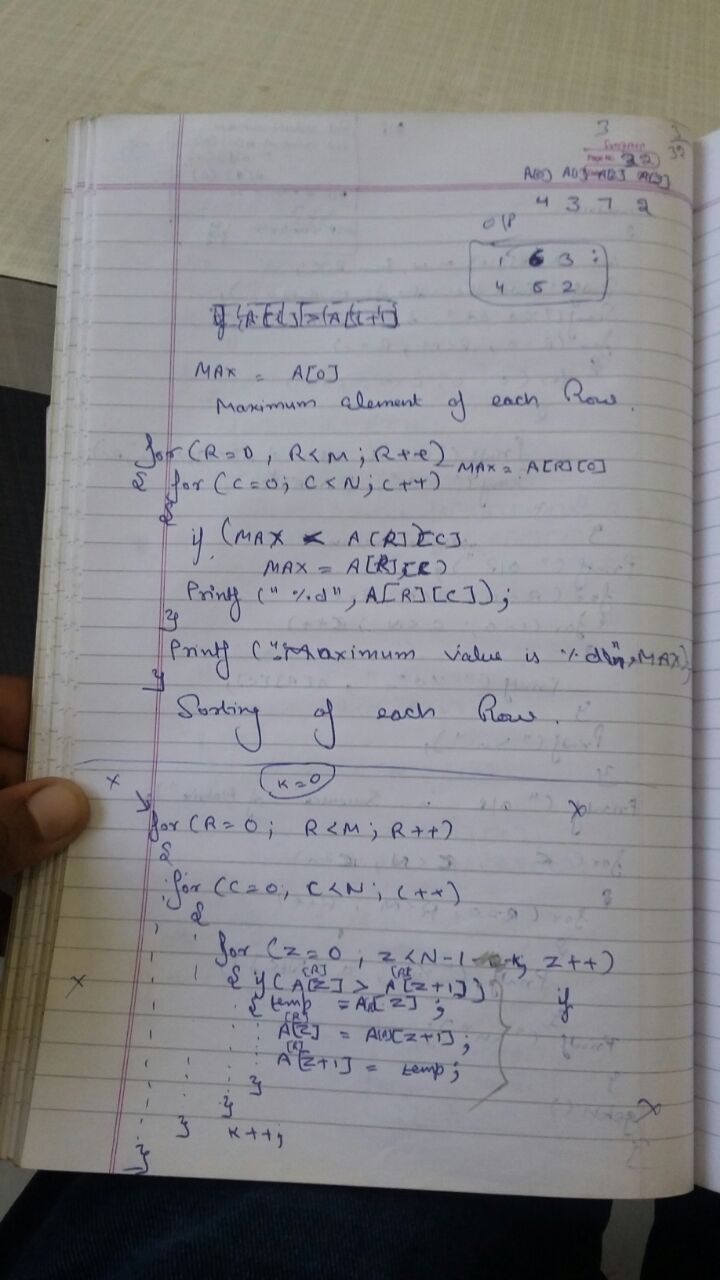 3 3
32
Page No. 32
A[0] A[1] A[2] A[3]
4 3 7 2
O/P
1 6 3 :
4 5 2
if (A[C] > A[C+1]
MAX = A[0]
Maximum element of each Row.
for (R=0, R<M; R++)
MAX = A[R][0]
{ for (C=0; C<N; C++)
{
if (MAX < A[R][C]
MAX = A[R][C]
Printf (" %d", A[R][C]);
}
Printf ("Maximum value is %d\n", MAX);
}
Sorting of each Row.
K=0
x
for (R=0; R<M; R++)
{
for (C=0; C<N; C++)
{
for (Z=0; Z<N-1-K; Z++)
{ if (A[R][Z] > A[R][Z+1])
x
{ temp = A[R][Z];
A[R][Z] = A[R][Z+1];
A[R][Z+1] = temp;
}
}
} K++;
}